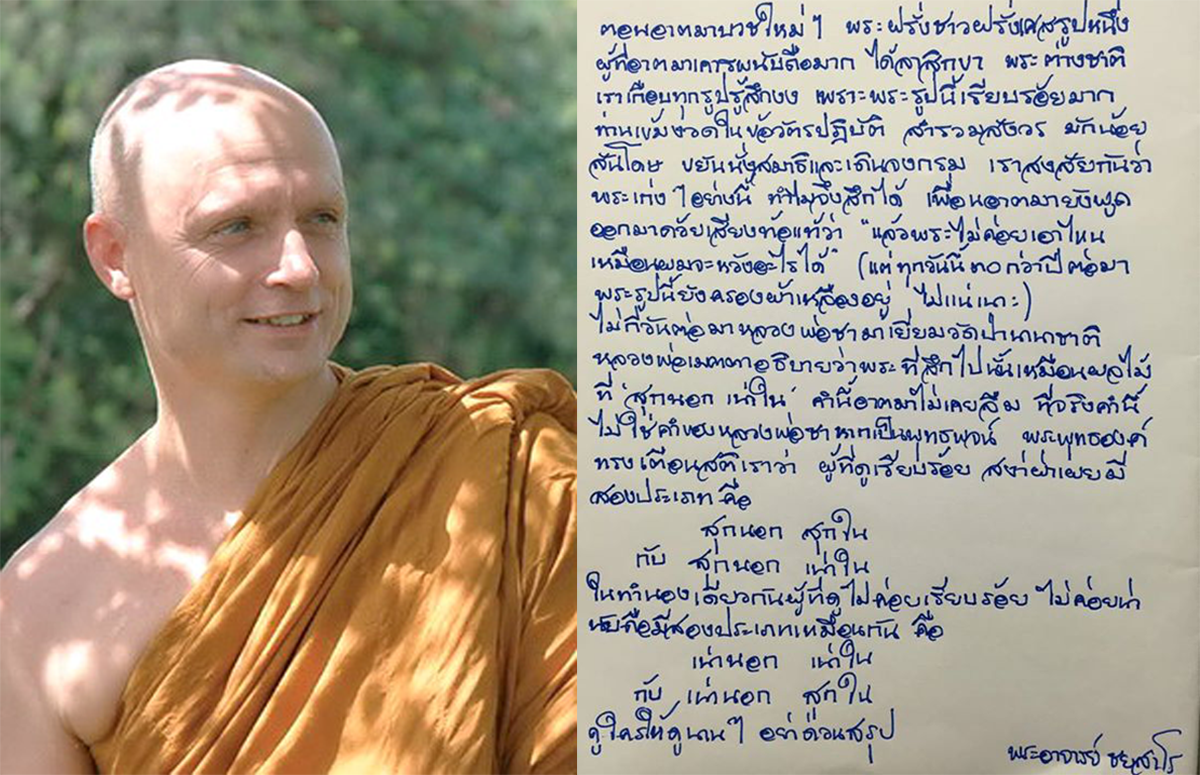 ตอนอาตมาบวชใหม่ๆ พระฝรั่งชาวฝรั่งเศสรูปหนึ่ง
ผู้ที่อาตมาเคารพนับถือมาก ได้ลาสิกขา พระต่างชาติ
เราเกือบทุกรูปรู้สึกงง เพราะพระรูปนี้เรียบร้อยมาก
ท่านเข้มงวดในข้อวัตรปฏิบัติ สำรวมสังวร มักน้อย
สันโดษ ขยันนั่งสมาธิและเดินจงกรม เราสงสัยกันว่า
พระเก่งๆ อย่างนี้ ทำไมจึงสึกได้ เพื่อนอาตมายังพูด
ออกมาด้วยเสียงท้อแท้ว่า "แล้วพระไม่ค่อยเอาไหน
เหมือนผมจะหวังอะไรได้" (แต่ทุกวันนี้ ๓๐ กว่าปีต่อมา
พระรูปนี้ยังครองผ้าเหลืองอยู่ ไม่แน่นะ)
ไม่กี่วันต่อมาหลวงพ่อชามาเยี่ยมวัดป่านานาชาติ
หลวงพ่อเมตตาอธิบายว่าพระที่สึกไปนั้นเหมือนผลไม้
ที่ 'สุกนอก เน่าใน' คำนี้อาตมาไม่เคยลืม ที่จริงคำนี้
ไม่ใช่คำของหลวงพ่อชา หากเป็นพุทธพจน์ พระพุทธองค์
ทรงเตือนสติเราว่า ผู้ที่ดูเรียบร้อย สง่าผ่าเผยมี
สองประเภท คือ
สุกนอก สุกใน
กับ สุกนอก เน่าใน
ในทำนองเดียวกันผู้ที่ดูไม่ค่อยเรียบร้อย ไม่ค่อยน่า
นับถือมีสองประเภทเหมือนกัน คือ
เน่านอก เน่าใน
กับ เน่านอก สุกใน
ดูใครให้ดูนานๆ อย่าด่วนสรุป
พระอาจารย์ ชยสาโร